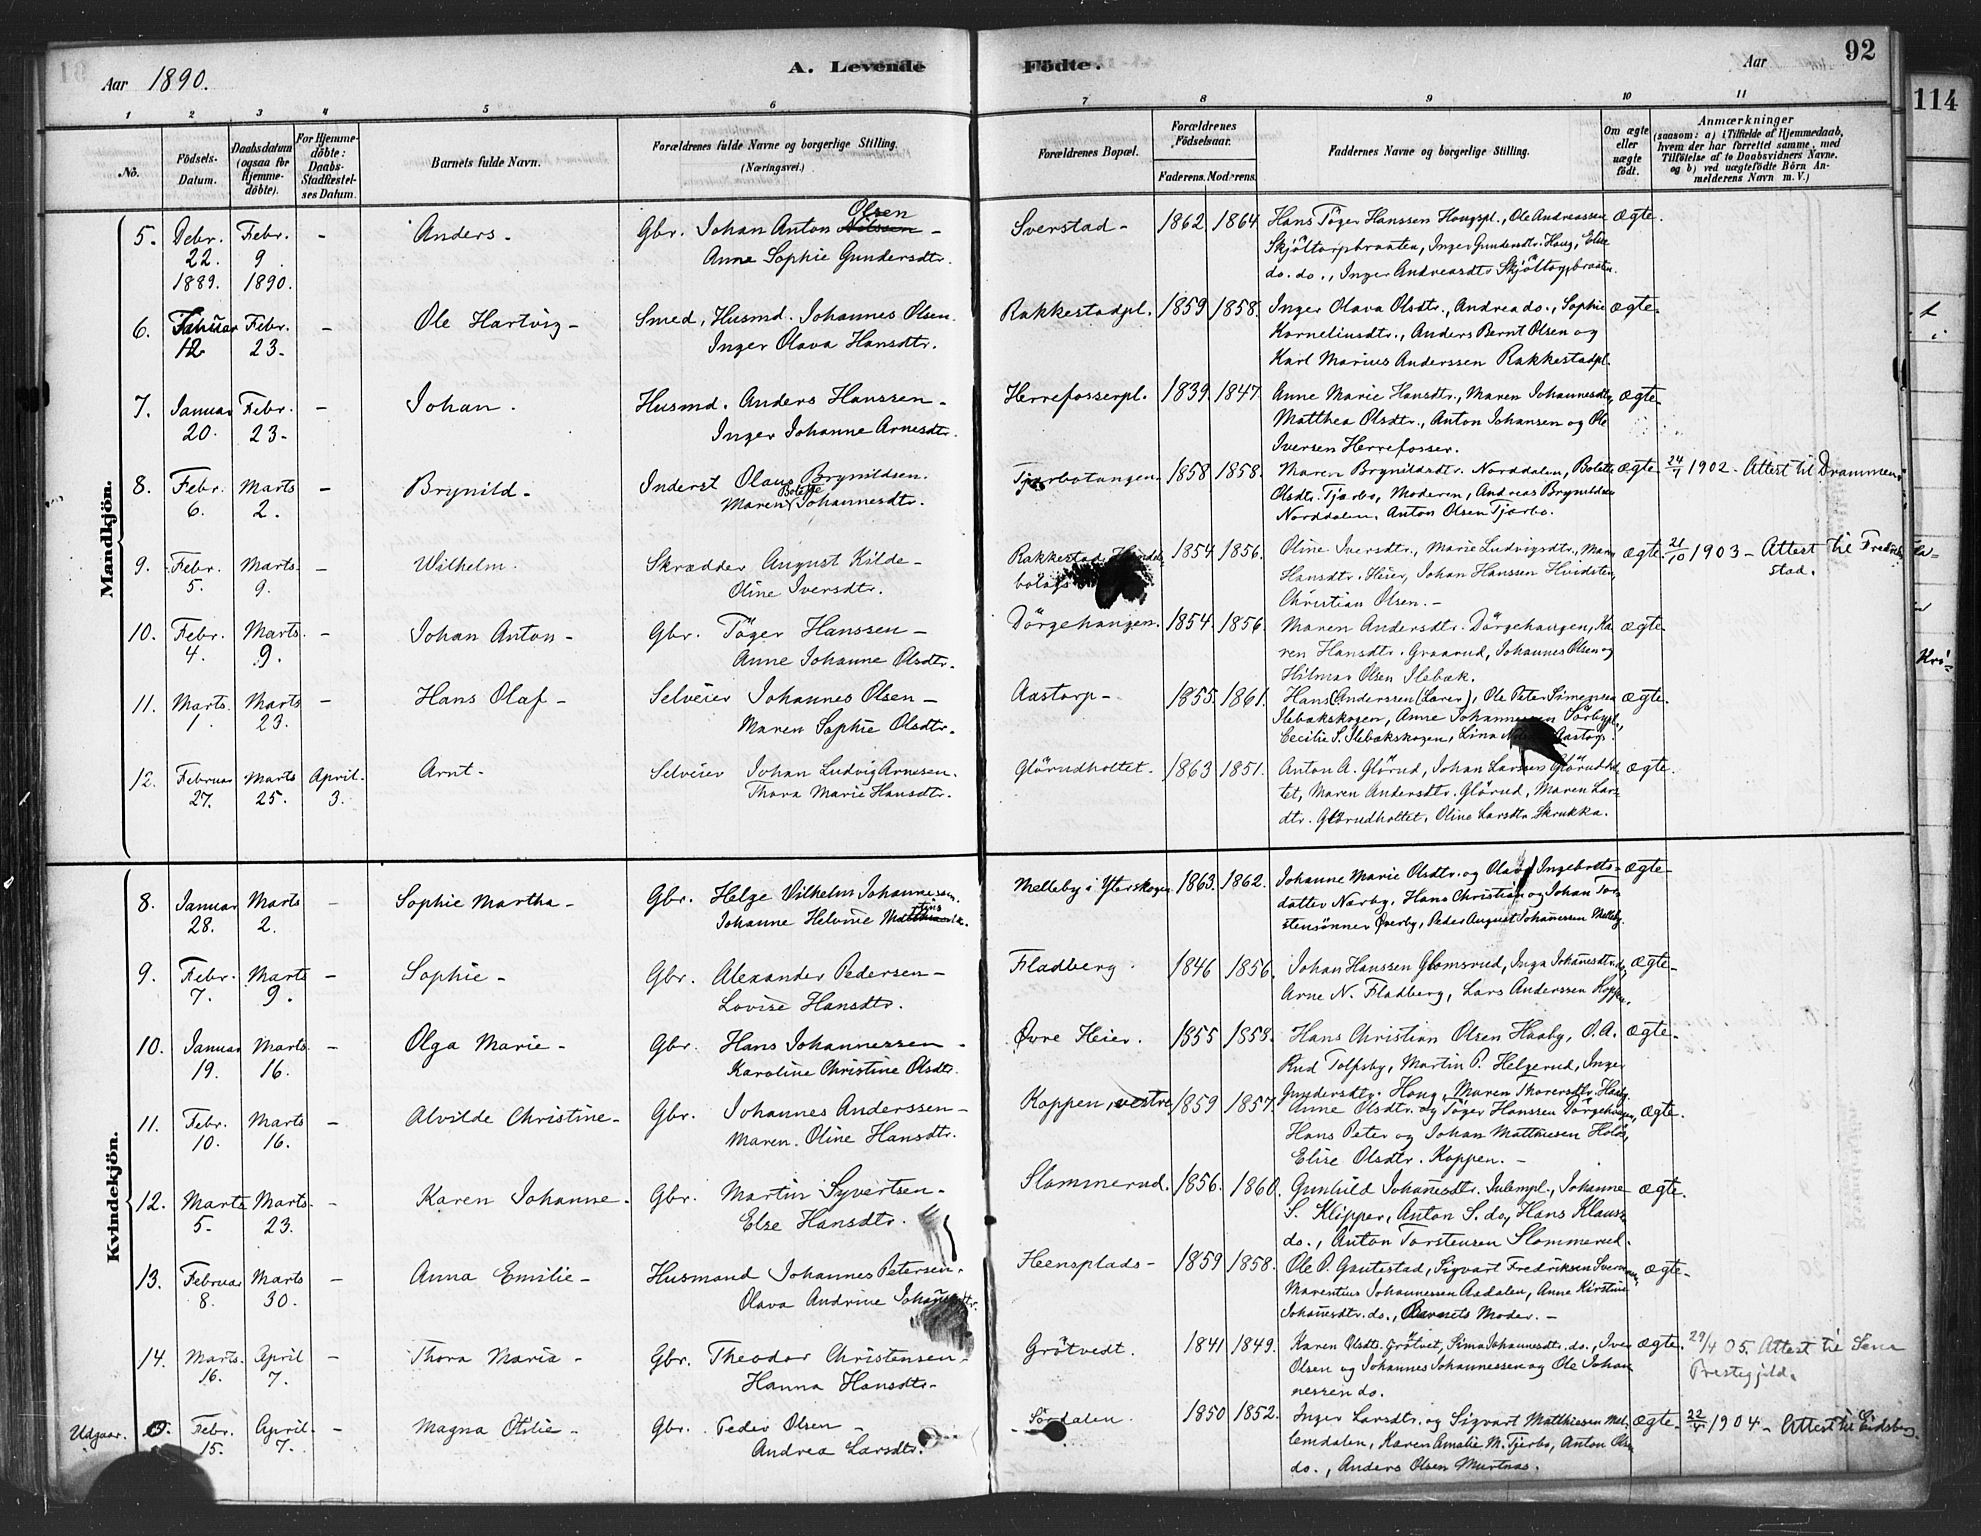 Aar 1890.
A. Levende Födte.
Aar
92
114
1 2 3 4 5 6 7 8 9 10 11
No.
Födsels-Datum.
Daabsdatum (ogsaa for Hjemme-döbte).
For Hjemme-döbte: Daabs-Stadfæstel-ses Datum.
Barnets fulde Navn.
Forældrenes fulde Navne og borgerlige Stilling. (Næringsvei.)
Forældrenes Bopæl.
Forældrenes Födselsaar.
Faderens. Moderens.
Faddernes Navne og borgerlige Stilling.
Om ægte eller uægte födt.
Anmærkninger
(saasom: a) i Tilfælde af Hjemmedaab, hvem der har forrettet samme, med Tilföielse af to Daabsvidners Navne, og b) ved uægtefödte Börn An-melderens Navn m. V.)
Mandkjön.
5. Debr. 22. 1889. Febr. 9. 1890. - Anders - Gbr. Johan Anton Nilssen Olsen - Sverstad - 1862 1864 Hans Töger Hanssen Hougspl., Ole Andreassen ægte.
Anne Sophie Gundersdtr. Skjöltorpbraaten, Inger Gundersdtr. Houg, Else
do. do., Inger Andreasdtr. Skjöltorpbraaten.
6. Januar 12 Febr. 23. - Ole Hartvig - Smed, Husmd. Johannes Olsen. Rakkestadpl. 1859 1858. Inger Olava Olsdtr., Andrea do., Sophie ægte.
Inger Olava Hansdtr. Korneliusdtr., Anders Bernt Olsen og
Karl Marius Anderssen Rakkestadpl.
7. Januar 20. Febr. 23. - Johan. Husmd. Anders Hanssen - Herrefosserpl. 1839. 1847. Anne Marie Hansdtr., Maren Johannesdtr., ægte.
Inger Johanne Arnesdtr. Matthea Olsdtr., Anton Johansen og Ole
Iversen Herrefosser.
8. Febr. 6. Marts 2. - Brynild - Inderst Olaus Brynildsen. Tjærbotangen. 1858 1858. Maren Brynildsdtr. Norddalen, Bolette ægte. 24/7 1902 - Attest til Drammen.
Maren Bolette Johannesdtr. Olsdtr. Tjærbo, Moderen, Andreas Brynildsen
Norddalen, Anton Olsen Tjærbo.
9. Febr. 5. Marts 9. - Wilhelm. Skrædder August Kilde - Rakkestad 1854 1856. Oline Iversdtr., Marie Ludvigsdtr., Maren ægte. 21/10 1903 - Attest til Fredrik-
Oline Iversdtr. Hansdtr. Heier, Johan Hanssen Hvidsten, stad.
Christian Olsen. -
10. Febr. 4. Marts 9. - Johan Anton - Gbr. Töger Hanssen - Dörgehaugen. 1854. 1856. Maren Andersdtr. Dörgehaugen, Ka- ægte.
Anne Johanne Olsdtr. ren Hansdtr. Graarud, Johannes Olsen og
Hilmar Olsen Ilebæk.
11. Marts 1. Marts 23. - Hans Olaf - Selveier Johannes Olsen - Aastorp - 1855. 1861. Hans Anderssen (Lærer), Ole Peter Simensen ægte.
Maren Sophie Olsdtr. Ilebækskogen, Anne Johannessen Sörbypl.,
Cecilie S. Ilebækskogen, Lina Aastorp.
12. Februar 27. Marts 25. April 3. Arnt. Selveier Johan Ludvig Arnesen. Glörudholtet. 1863 1851. Anton A. Glörud, Johan Larssen Glörudhol- ægte.
Thora Marie Hansdtr. tet, Maren Andersdtr. Glörud, Maren Lars-
dtr. Glörudholtet, Oline Larsdtr. Skrukka.
Kvindekjön.
8. Januar 28. Marts 2. - Sophie Martha - Gbr. Helge Vilhelm Johannesen. Melleby i Ytterskogen 1863. 1862. Johanne Marie Olsdtr. og Olava Ingebrets- ægte
Johanne Helvine datter Nærby, Hans Christian og Johan Tor-
stensönner Överby, Peder August Johannessen Melleby.
9. Febr. 7. Marts 9. - Sophie - Gbr. Alexander Pedersen - Fladberg. 1846 1856. Johan Hanssen Glomsrud, Inga Johannesdtr. do, ægte.
Lovise Hansdtr. Arne N. Fladberg, Lars Anderssen Koppen.
10. Januar 19. Marts 16. - Olga Marie - Gbr. Hans Johannessen - Övre Heier. 1855 1858. Hans Christian Olsen Haaby, O. A. ægte.
Karoline Christine Olsdtr. Rud Tolpsby, Martin P. Helgerud, Inger
Gundersdtr. Houg, Maren Thoresdtr. Haaby.
11. Febr. 10. Marts 16. - Alvilde Christine - Gbr. Johannes Anderssen - Koppen, vestre 1859 1857. Anne Olsdtr. og Töger Hanssen Dörgehaugen, ægte.
Maren Oline Hansdtr. Hans Peter og Johan Matthiesen Holös,
Elise Olsdtr. Koppen. -
12. Marts 5. Marts 23. - Karen Johanne. Gbr. Martin Syvertsen - Slommerud. 1856. 1860. Gunhild Johannesdtr. Julempl., Johanne ægte.
Else Hansdtr. S. Klipper, Anton S. do, Hans Klauss.
do., Anton Torstensen Slommerud.
13. Februar 8. Marts 30. - Anna Emilie - Husmand Johannes Petersen. Heensplads - 1859 1858. Ole P. Gautestad, Sigvart Fredriksen ægte.
Olava Andrine Johannesdtr. Marentius Johannessen Aadalen, Anne Kirstine
Johannesdtr. do., Barnets Moder. -
14. Marts 16. April 7. - Thora Maria - Gbr. Theodor Christensen - Grötvedt. 1841 1849. Karen Olsdtr. Grötvet, Sina Johannesdtr. do., Iver ægte. 29/4 05. Attest til
Hanna Hansdtr. Olsen og Johannes Johannessen og Ole Johan- Prestegjeld.
nessen do.
Udgaar. 15. Febr. 15. April 7. - Magna Otilie - Gbr. Peder Olsen - Sördalen. 1850 1852. Inger Larsdtr. og Sigvart Matthiesen Mel- ægte. 22/4 1904 - Attest til Eidsberg.
Andrea Larsdtr. lemdalen, Karen Amalie M. Tjerbo, Anton Olsen
do., Anders Olsen Murtnæs.